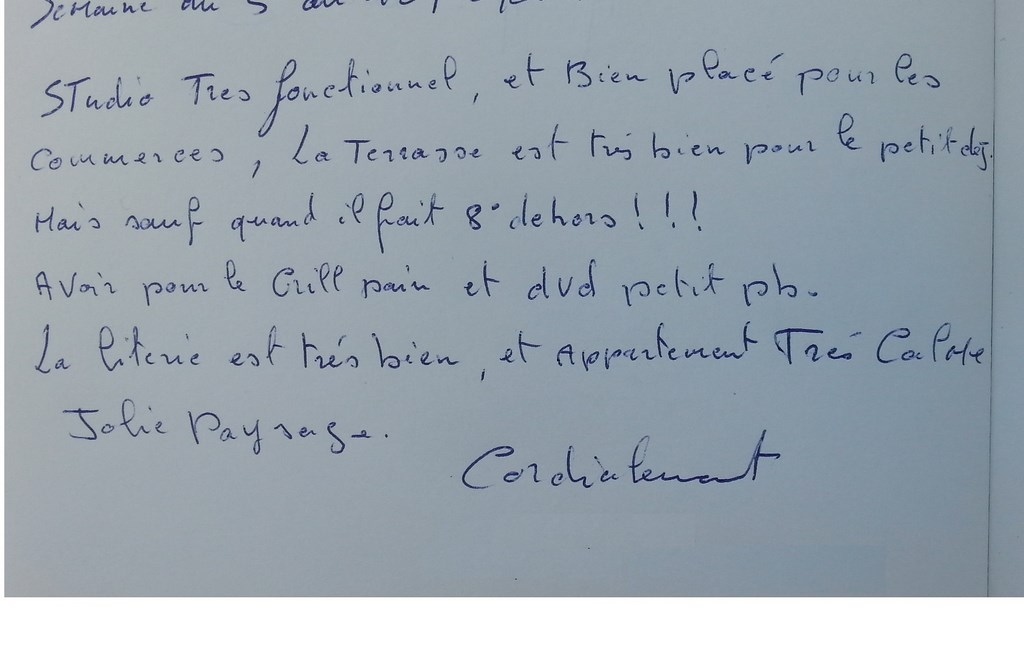 Semaine du 5 au
STudio Tres fonctionnel, et Bien placé pour les
Commerces, La Terrasse est trés bien pour le petit dej.
Mais sauf quand il fait 8° dehors!!!
A Voir pour le Grill pain et dvd petit pb.
La literie est trés bien, et Appartement Trés Calme
Jolie Paysage.
Cordialement